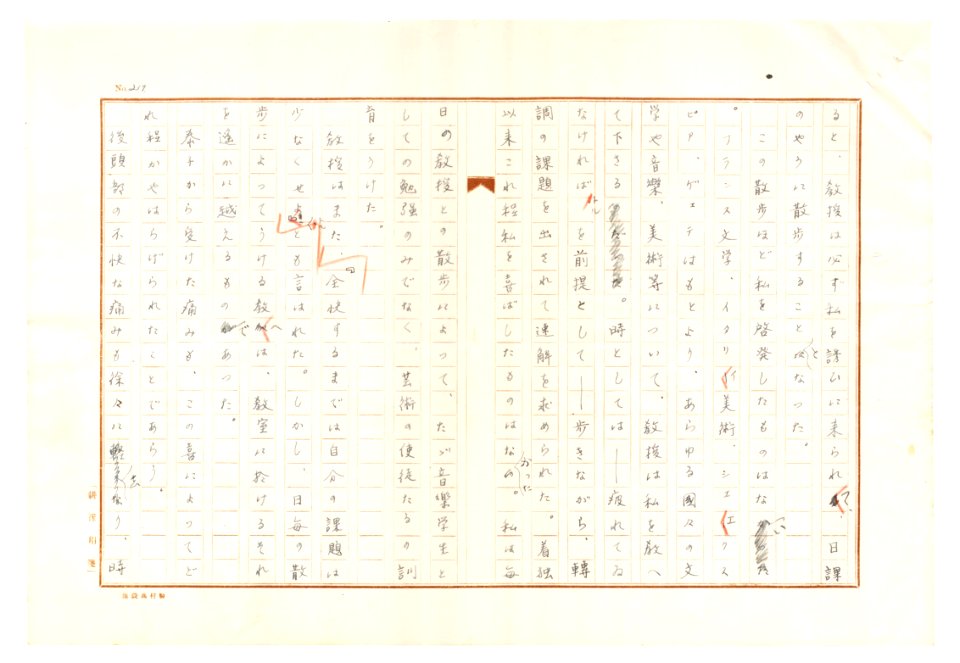 No. 217
ると、教授は必ず私を誘ひに来られて、日課
のやうに散歩することとなつた。
この散歩ほど私を啓発したものはない
。フランス文学、イタリイ美術、シエエクス
ピア、ゲエテはもとより、あらゆる國々の文
学や音樂、美術等について、教授は私を教へ
て下さる。時としては——疲れてゐ
なければを前提として——歩きながら、轉
調の課題を出されて連解を求められた。着独
以来これ程私を喜ばしたものはなかつた。私は毎
日の教授との散歩によつて、たゞ音樂学生と
しての勉強のみでなく、芸術の使徒たるの訓
育をうけた。
教授はまた、全快するまでは自分の課題は
少なくせよとも言はれた。しかし、日毎の散
歩によつてうける教へは、教室に於けるそれ
を遥かに越えるものであつた。
泰子から受けた痛みも、この喜によつてど
れ程かやはらげられたことであらう。
後頭部の不快な痛みも徐々に去り、時